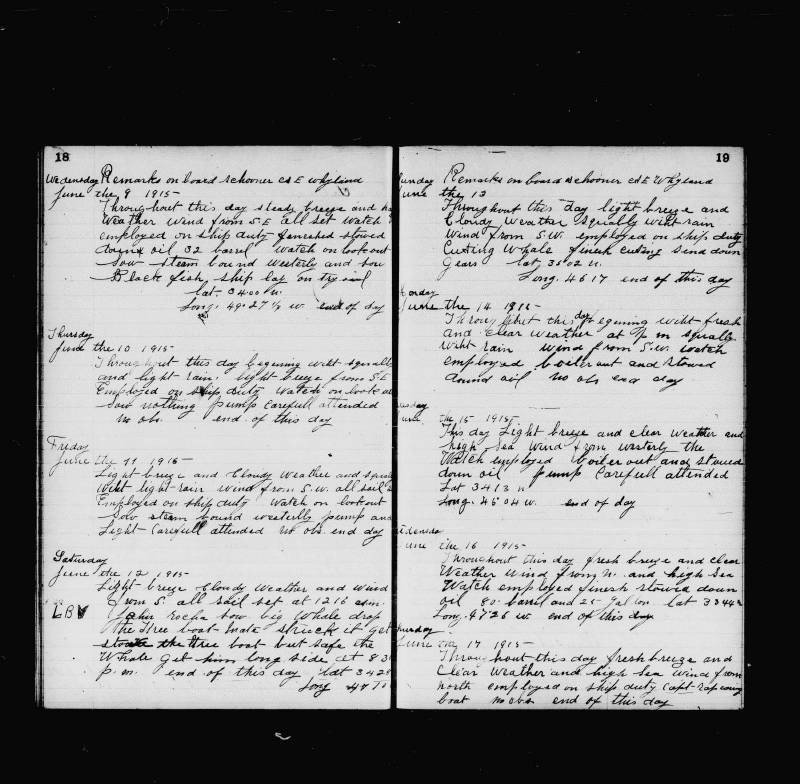 18
Wednesday Remarks on board schooner A E Whyland
June the 9 1915
Throughout this day steady breeze and
Weather wind from S E all set Watch
employed on ship duty fineshed stowed
down oil 32 barrel Watch on lookout
sow steam bound westerly and sow
Black fish ship lay on try sail
lat. 3400 n.
Long. 49.27 ½ w. end of day
Thursday
June the 10 1915
Throughout this day begening wiht squalls
and light rain light breeze from S E
Employed on ship duty Watch on look
sow nothing pump carefull attended
no obs. end of this day
Friday
June the 11 1915
Light breeze and Cloudy Weather and
wiht light rain wind from S.W. all sail
Employed on ship duty Watch on lookout
Sow steam bound westerlly pump and
Light Carefull attended no obs. end day
Saturday
June the 12 1915
Light breeze Cloudy Weather and Wind
from S. all sail set at 1215
rocha sow big Whale drop
the tree boat mate struck it get
the tree boat but safe the
Whale get him long side at 8 3
p.m. end of this day lat 342
Long 47
19
Sunday Remarks on board schooner A E Whyland
June the 13
Throughout this day light breeze and
Cloudy Weather squally wiht rain
Wind from S.W. employed on ship duty
Cuting Whale finesh cuting send down
Gears lat. 3502 n.
Long. 4617 end of this day
Monday
June the 14 1915
Throughout this day begening wiht fresh
and clear weather at p m squalls
wiht rain wind from S.W. Watch
employed boiler out and stowed
dound oil no obs end day
Tuesday
June the 15 1915
This day Light breeze and clear Weather and
high Sea Wind from westerly the
Watch employed boiler out and stowed
down oil pump Carefull attended
Lat 3413 n
Long. 4604 w. end of day
Wednesday
June the 16 1915
Throughout this day fresh breeze and clear
Weather wind from n. and high Sea
Watch employed finesh stowed down
oil 80 barrel and 25 gallon lat 3344 n
Long. 4726 w. end of this day
Thursday
June the 17 1915
Throughout this day fresh breeze and
Clear Weather and high Sea Wind from
north employed on ship duty Capt
boat no obs end of this day